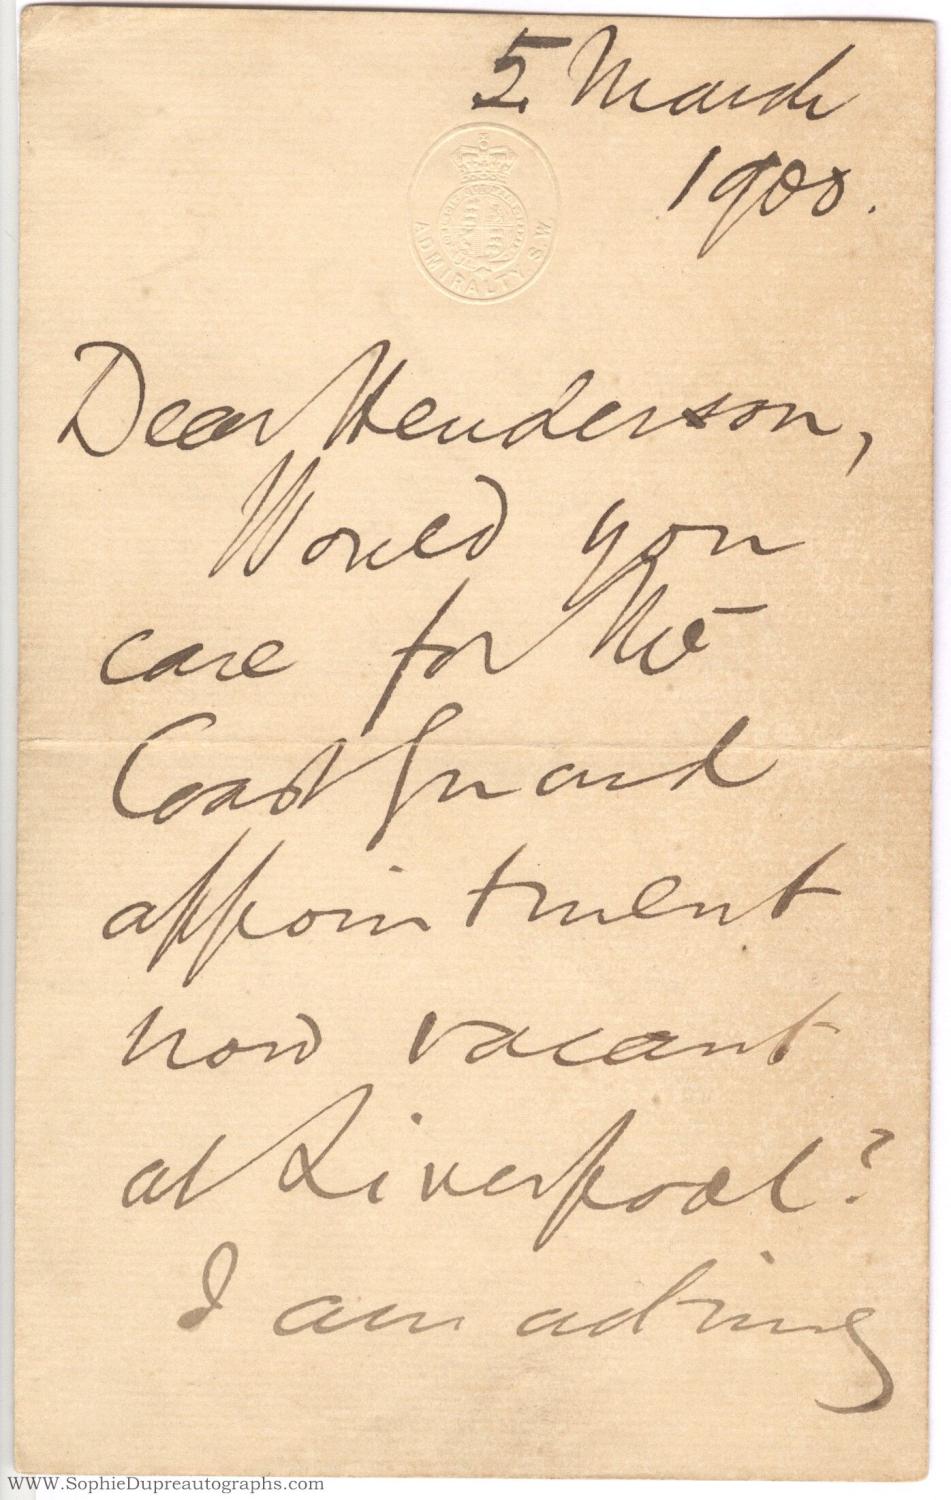 5 March
1900.
ADMIRALTY S.W.
Dear Henderson,
Would you
care for the
Coast Guard
appointment
now vacant
at Liverpool?
I am asking
WWW.SophieDupreautographs.com